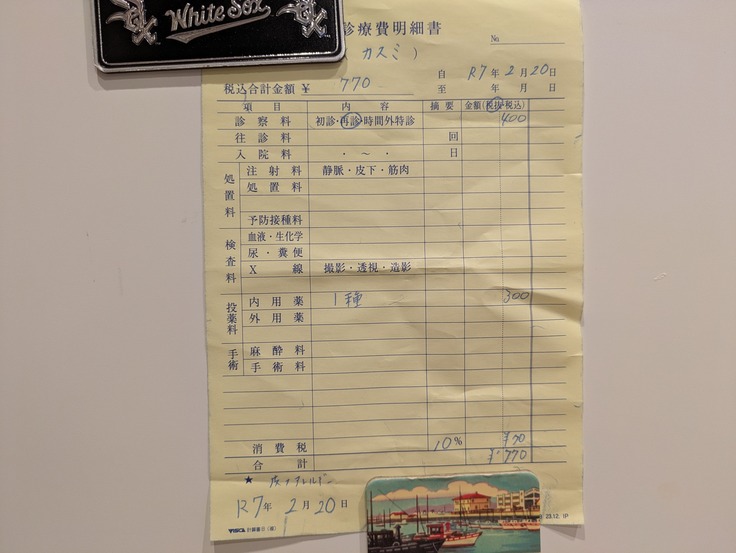 White Sox
診療費明細書
カスミ)
No.
税込合計金額 ¥ 770
自 R7年2月20日
至 年 月 日
項目 内容 摘要 金額(税抜・税込)
診察料 初診・再診・時間外特診 400
往診料 回
入院料 ・ ～ ・ 日
処置料
注射料 静脈・皮下・筋肉
処置料
予防接種料
検査料
血液・生化学
尿・糞便
X線 撮影・透視・造影
投薬料
内用薬 1種 300
外用薬
手術
麻酔料
手術料
消費税 10% ¥70
合計 ¥770
★ 皮フアレルギー
R7年2月20日
VISCA 計録書日(株)
23.12. 1P